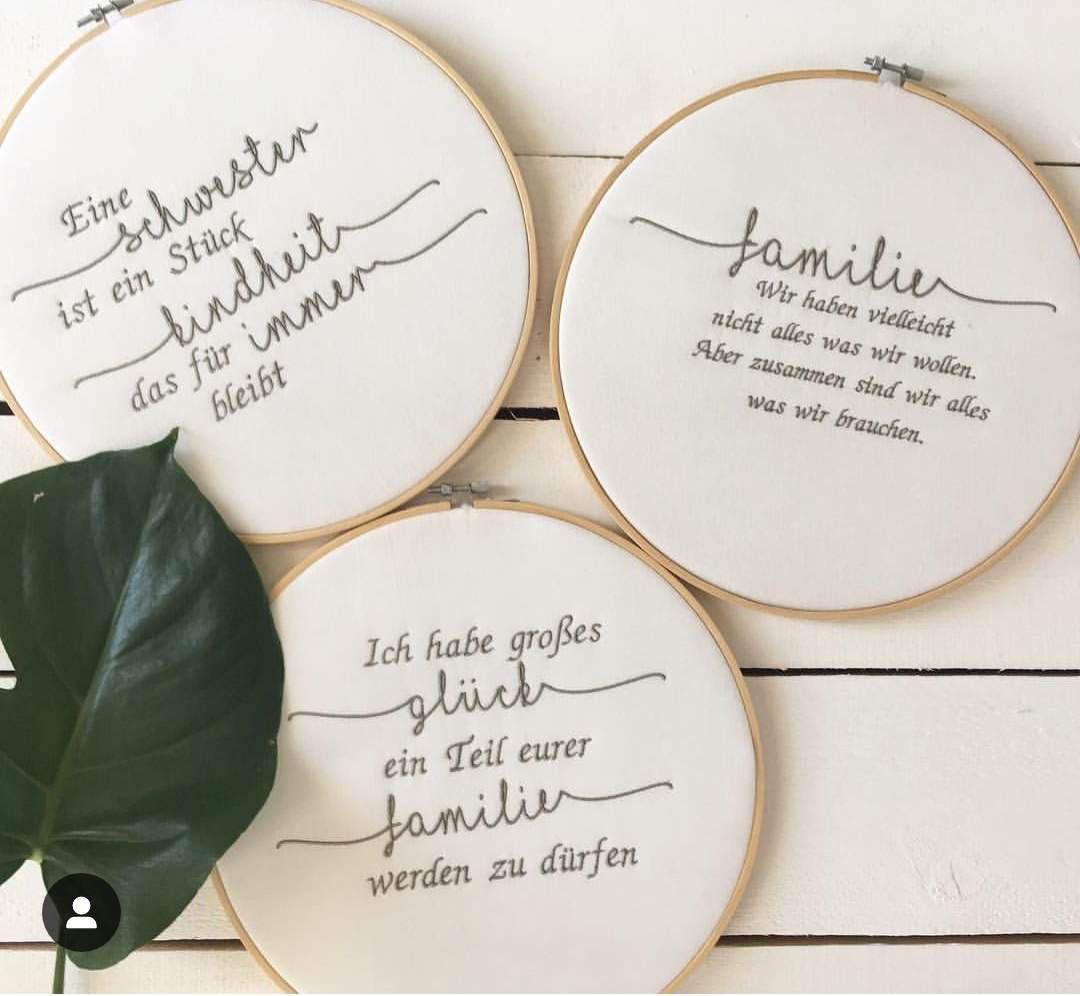 Eine
schwester
ist ein Stück
kindheit
das für immer
bleibt
familie
Wir haben vielleicht
nicht alles was wir wollen.
Aber zusammen sind wir alles
was wir brauchen.
Ich habe großes
glück
ein Teil eurer
familie
werden zu dürfen